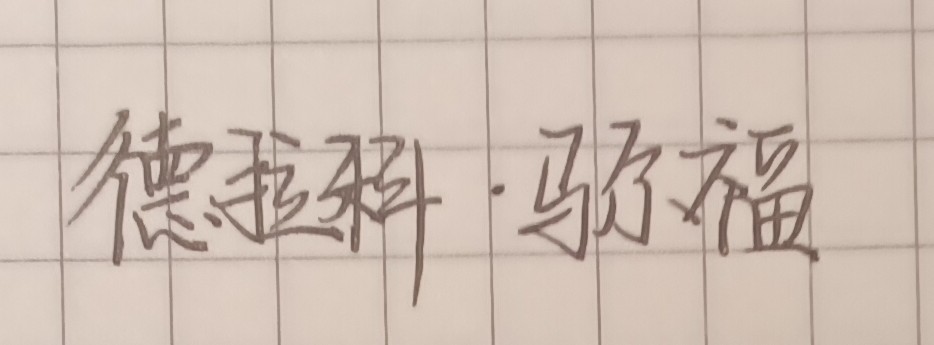 德拉科·马尔福